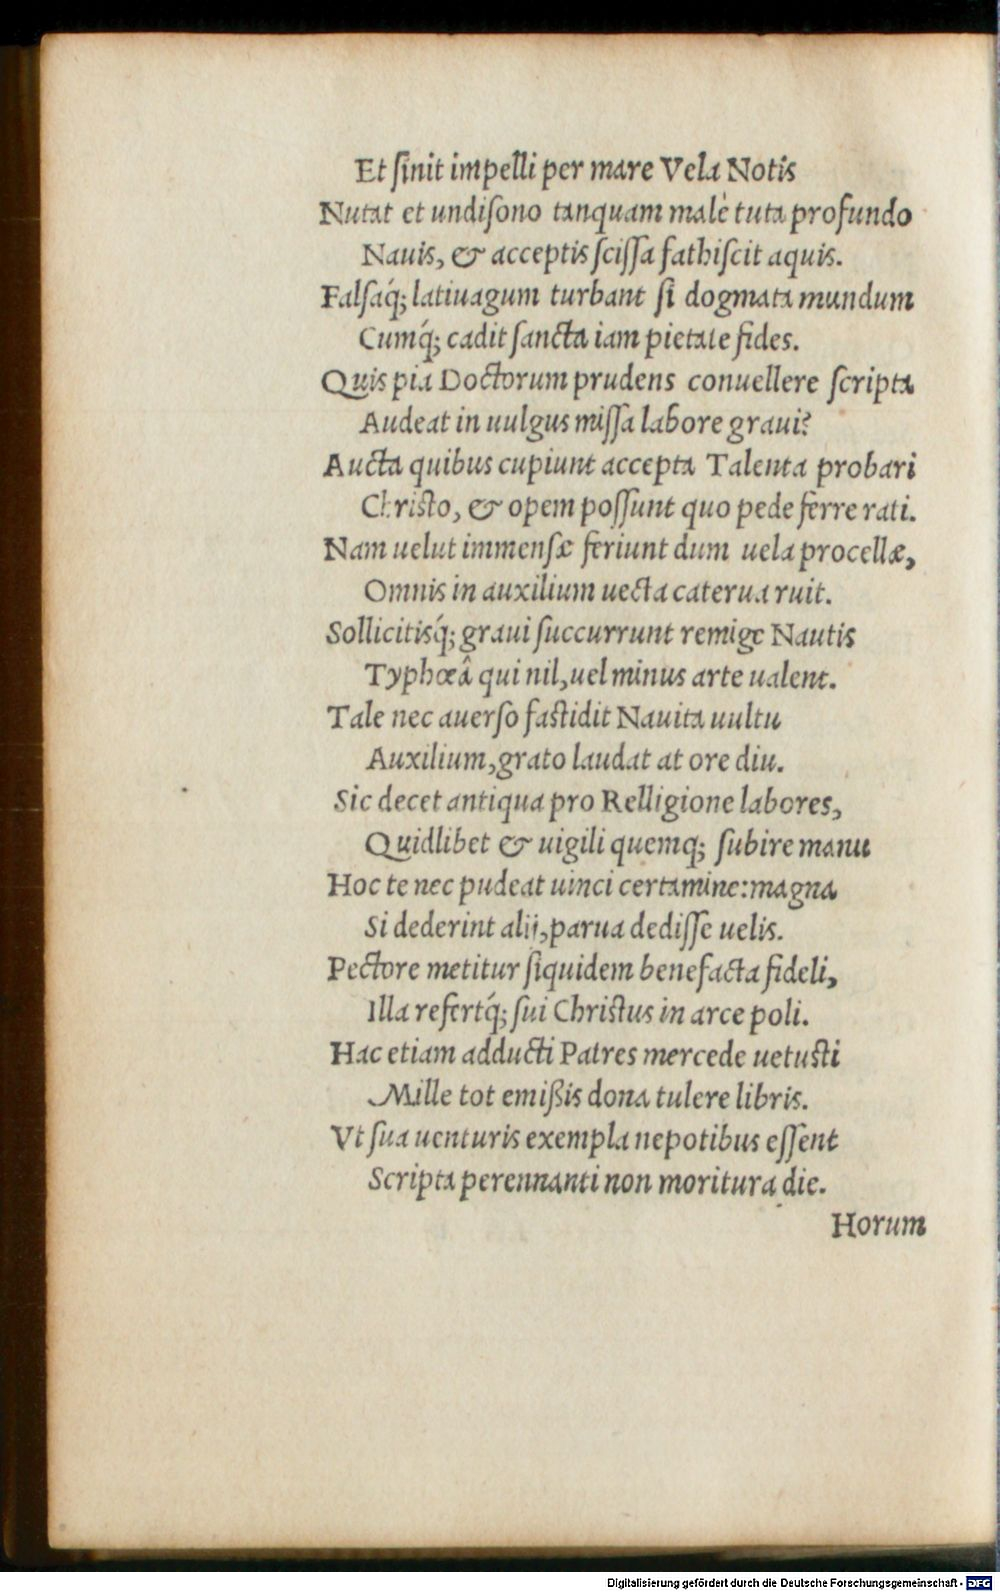 Et ſinit impelli per mare Vela Notis
Nutat et undiſono tanquam malè tuta profundo
Nauis, & acceptis sciſſa fathiſcit aquis.
Falſaq́; latiuagum turbant ſi dogmata mundum
Cumq́; cadit ſancta iam pietate fides.
Quis pia Doctorum prudens conuellere ſcripta
Audeat in uulgus miſſa labore graui?
Aucta quibus cupiunt accepta Talenta probari
Christo, & opem poſſunt quo pede ferre rati.
Nam uelut immenſæ feriunt dum uela procellæ,
Omnis in auxilium uecta caterua ruit.
Sollicitisq́; graui ſuccurrunt remige Nautis
Typhœâ qui nil, uel minus arte ualent.
Tale nec auerſo fastidit Nauita uultu
Auxilium, grato laudat at ore diu.
Sic decet antiqua pro Relligione labores,
Quidlibet & uigili quemq; ſubire manu
Hoc te nec pudeat uinci certamine: magna
Si dederint alij, parua dediſſe uelis.
Pectore metitur ſiquidem benefacta fideli,
Illa refertq́; ſui Christus in arce poli.
Hac etiam adducti Patres mercede uetusti
Mille tot emißis dona tulere libris.
Vt ſua uenturis exempla nepotibus eſſent
Scripta perennanti non moritura die.
Horum
Digitalisierung gefördert durch die Deutsche Forschungsgemeinschaft - DFG